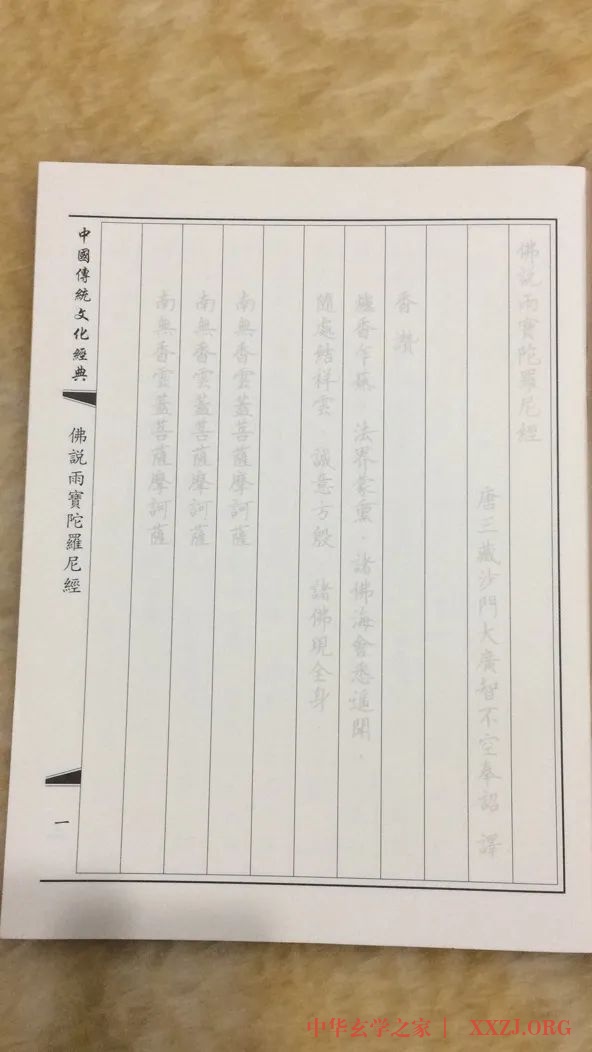 佛說雨寶陀羅尼經
唐三藏沙門大廣智不空奉詔 譯
香讚
爐香乍爇．法界蒙熏．諸佛海會悉遙聞．
隨處結祥雲．誠意方殷．諸佛現全身．
南無香雲蓋菩薩摩訶薩
南無香雲蓋菩薩摩訶薩
南無香雲蓋菩薩摩訶薩
中國傳統文化經典
佛說雨寶陀羅尼經
一
中华玄学之家 | XXZJ.ORG